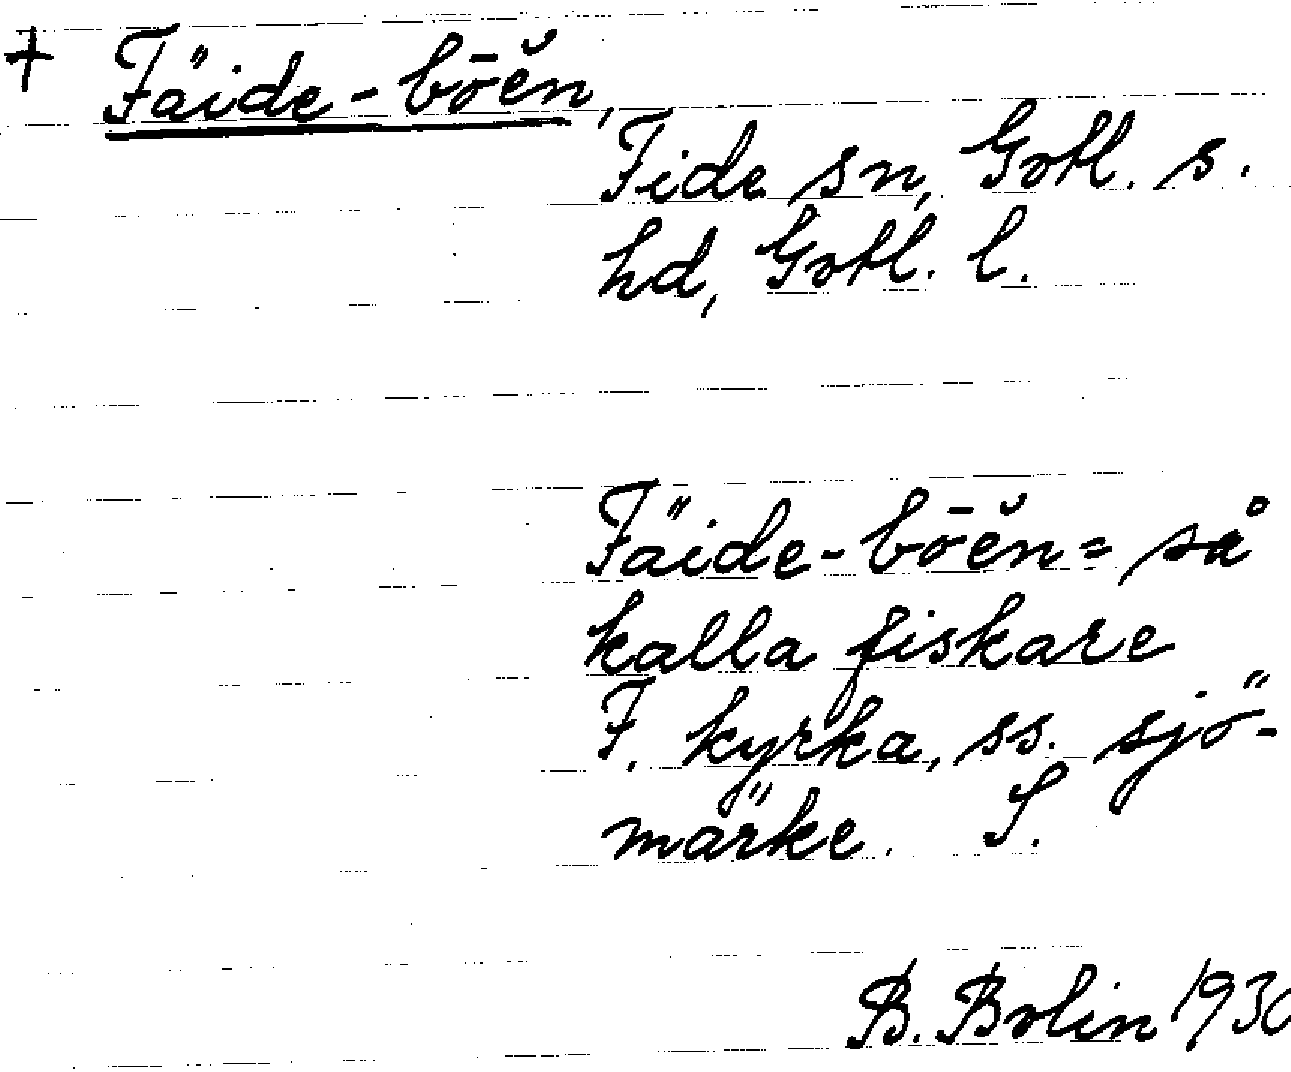 + Fäide-bōĕn,
Fide sn, Gotl. s.
hd, Gotl. l.
Fäide-bōĕn = så
kalla fiskare
F. kyrka, ss. sjö-
märke. S.
B. Bolin 1930